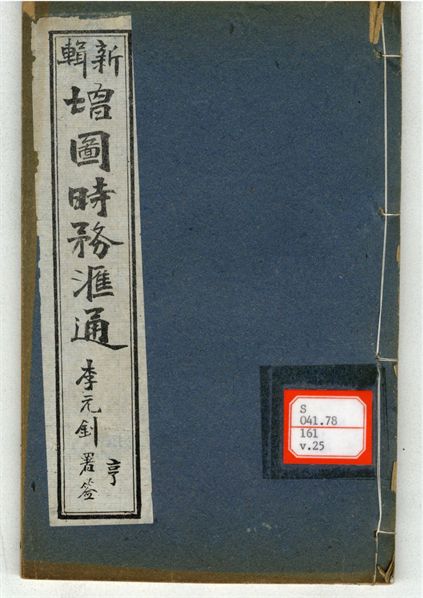 新輯
增圖時務滙通
李元釗署簽
亨
S
041.78
161
v.25